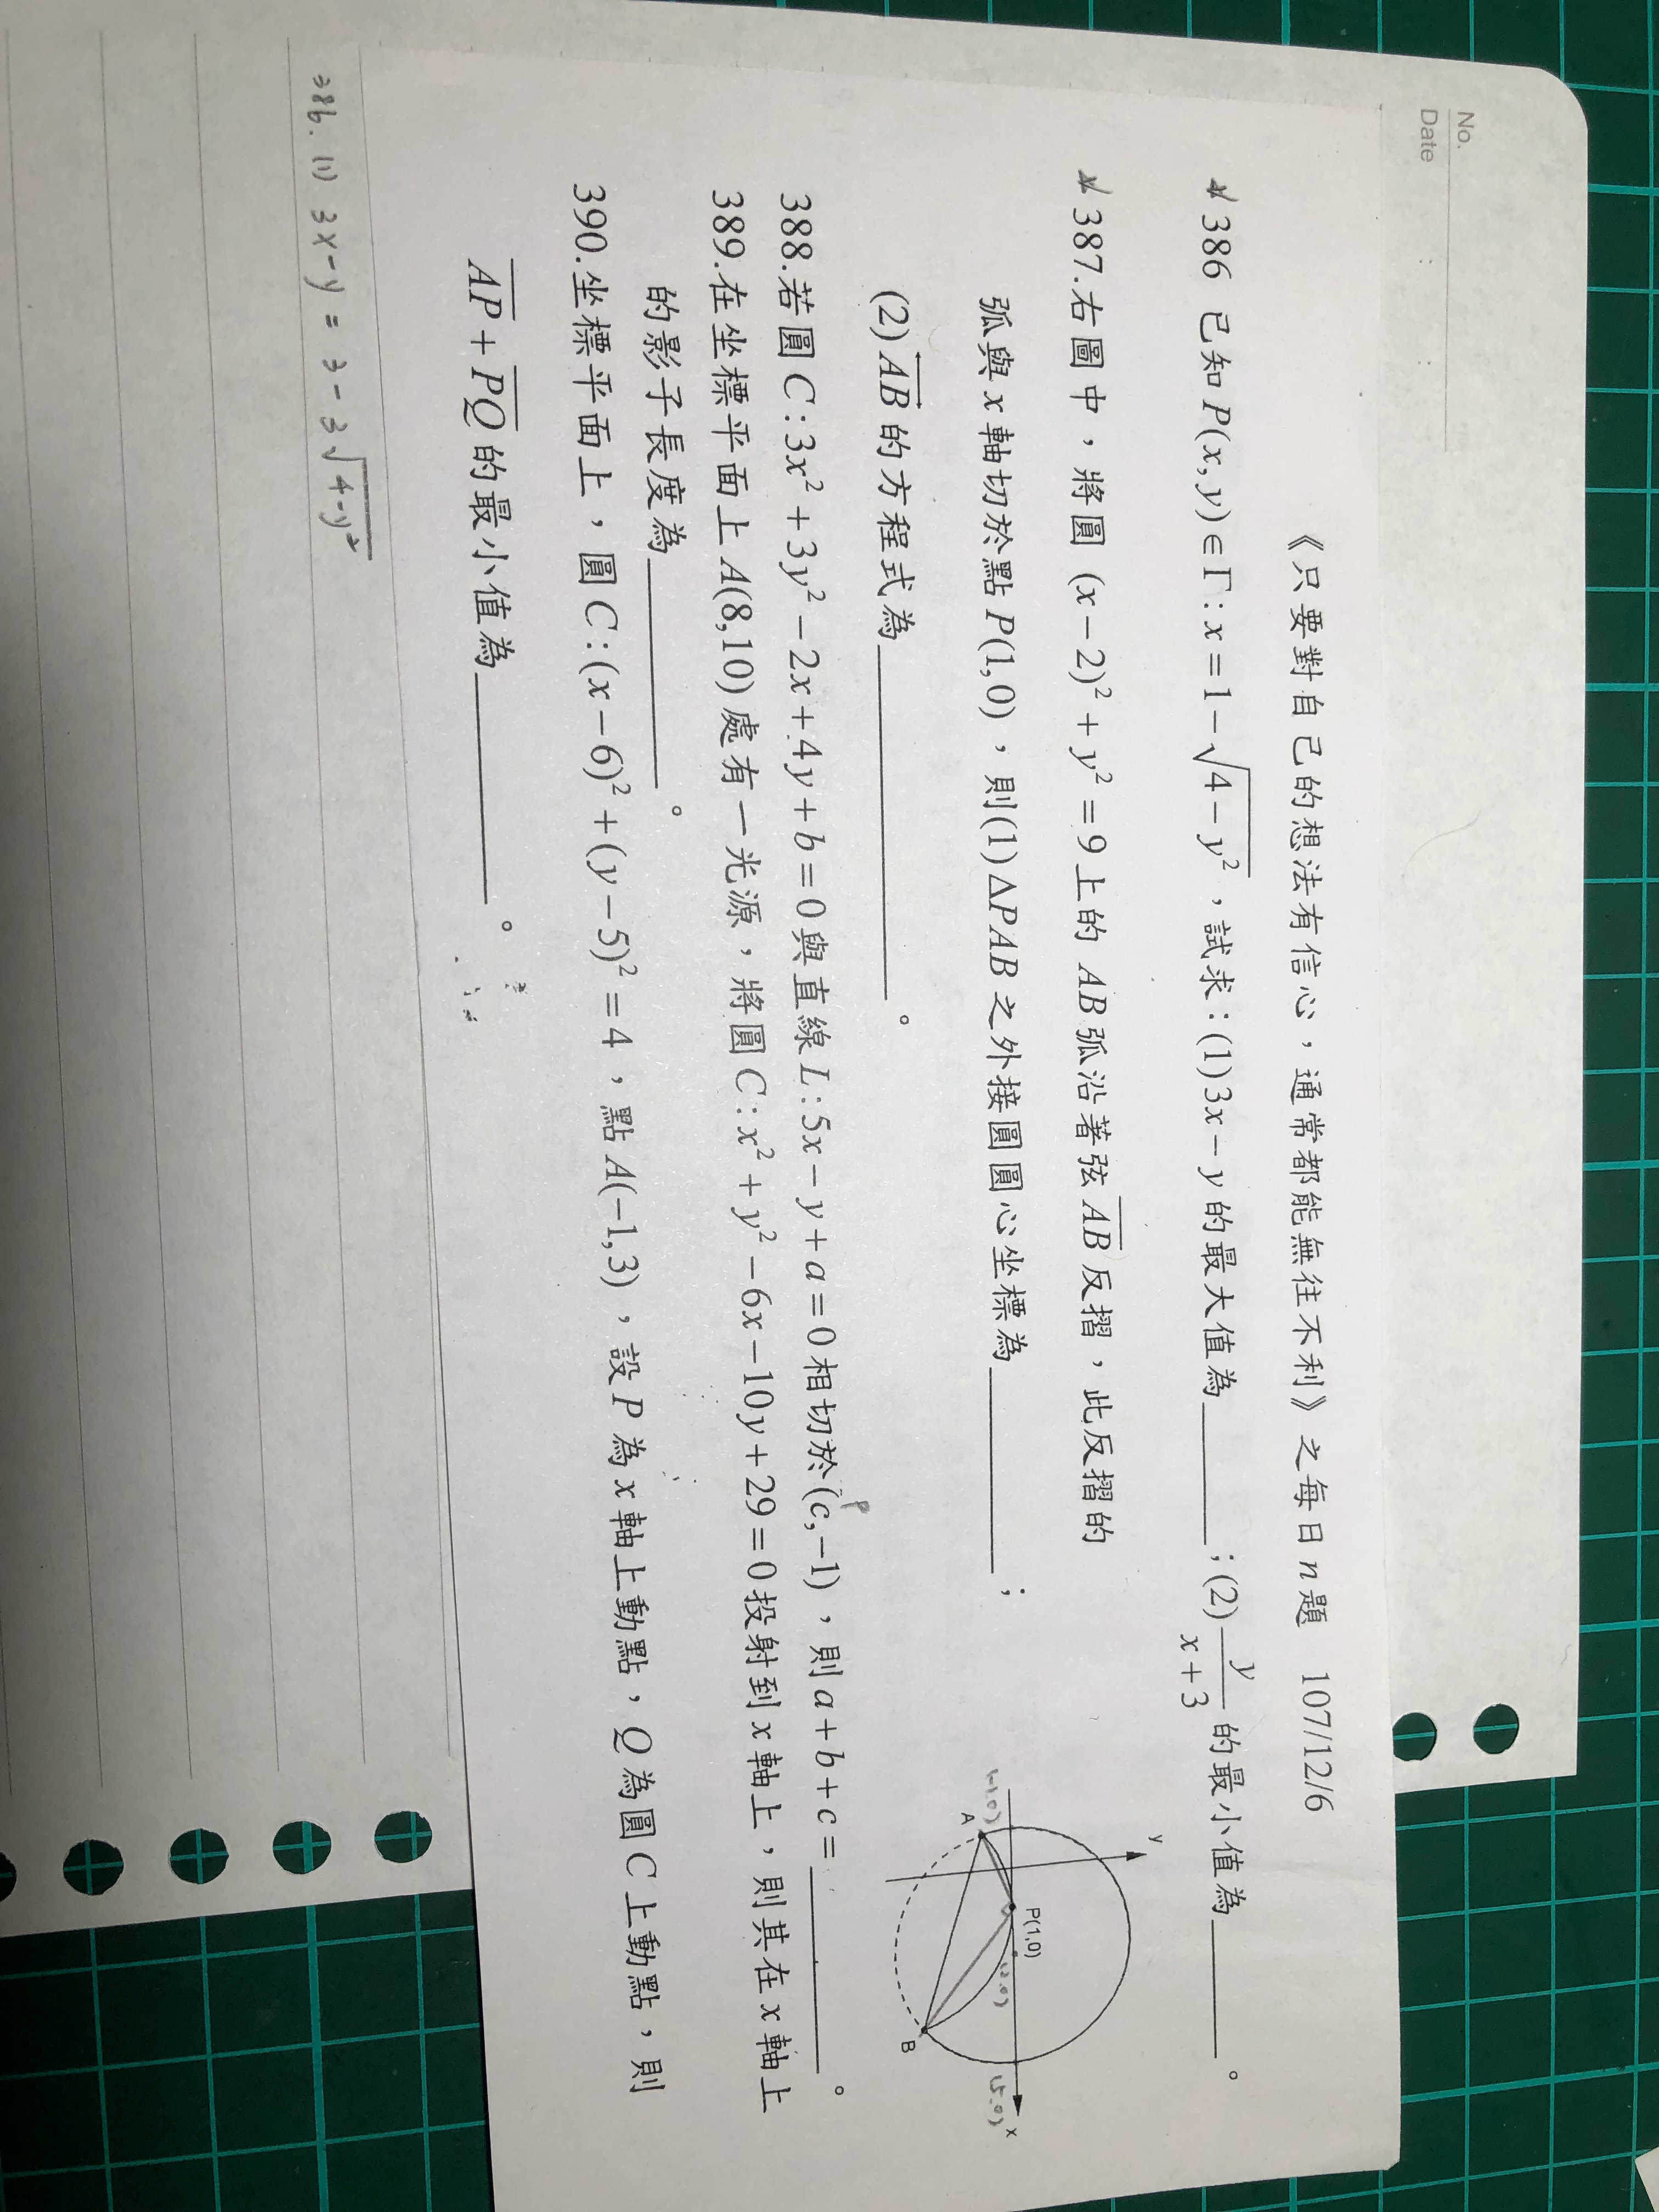 No.
Date : :
《只要對自己的想法有信心，通常都能無往不利》之每日n題 107/12/6
386 已知P(x,y)∈Γ:x=1-√(4-y²)，試求:(1)3x-y的最大值為________；(2) y/(x+3) 的最小值為________。
387.右圖中，將圓 (x-2)²+y²=9上的 AB弧沿著弦AB反摺，此反摺的
弧與x軸切於點P(1,0)，則(1)ΔPAB之外接圓圓心坐標為________；
(2)AB的方程式為____________。
y
P(1,0)
x
A
B
(-1,0)
(2,0)
(5,0)
388.若圓C:3x²+3y²-2x+4y+b=0與直線L:5x-y+a=0相切於(c,-1)，則a+b+c=________。
P
389.在坐標平面上A(8,10)處有一光源，將圓C:x²+y²-6x-10y+29=0投射到x軸上，則其在x軸上
的影子長度為________。
390.坐標平面上，圓C:(x-6)²+(y-5)²=4，點A(-1,3)，設P為x軸上動點，Q為圓C上動點，則
AP+PQ的最小值為________。
386. (1) 3x-y = 3-3√(4-y²)